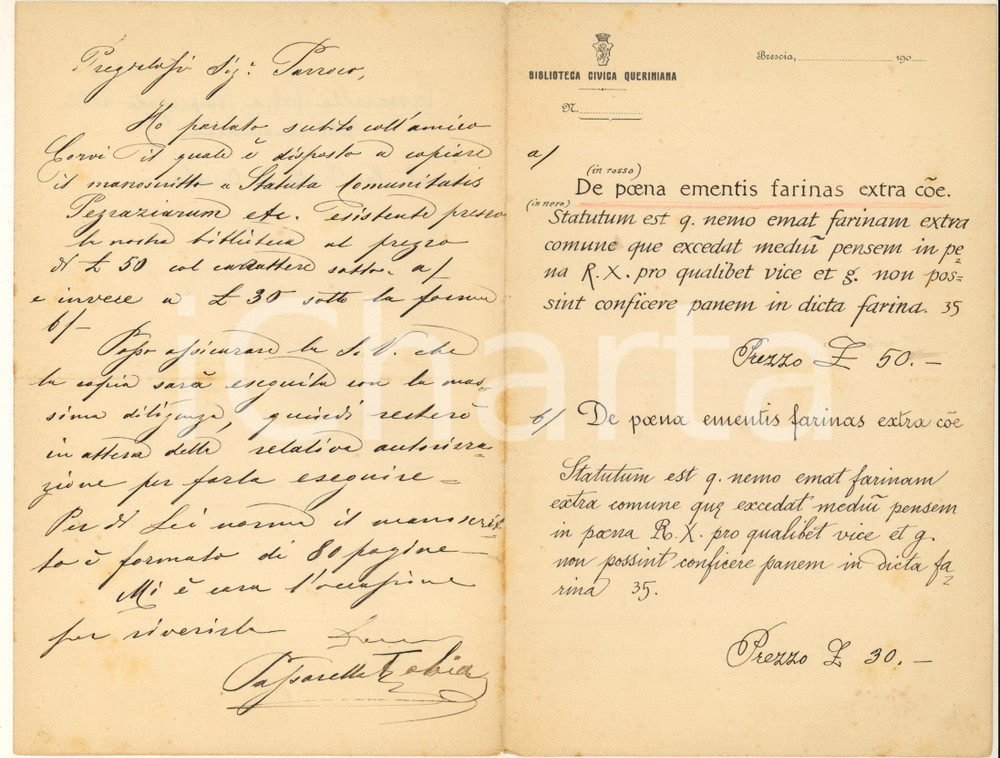 Pregiatissi Sigr. Parroco,
Ho parlato subito coll'amico
Corvi il quale è disposto a copiare
il manoscritto e Statuta Comunitatis
Pezraziarum etc. esistente presso
la nostra biblioteca al prezzo
di £ 50 col carattere sotto a/
e invece a £ 30 sotto la forma
b/-
Posso assicurare la S. V. che
la copia sarà eseguita con la mas-
sima diligenza, quindi resterò
in attesa della relativa autorizza-
zione per farla eseguire=
Per di Lei norma il manoscrit-
to è formato di 80 pagine-
Mi è cara l'occasione
per riverirla
Passarella Tobia
BIBLIOTECA CIVICA QUERINIANA
Brescia, 190
N.
a/
(in rosso)
De pœna ementis farinas extra cõe.
(in nero)
Statutum est q. nemo emat farinam extra
comune que excedat mediũ pensem in pe=
na R. X. pro qualibet vice et g. non pos=
sint conficere panem in dicta farina. 35
Prezzo £ 50.—
b/ De pœna ementis farinas extra cõe
Statutum est q. nemo emat farinam
extra comune quę excedat mediũ pensem
in pœna R. X. pro qualibet vice et g.
non possint conficere panem in dicta fa=
rina 35.
Prezzo £ 30.—
iCharta